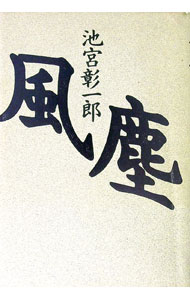 池宮彰一郎
風塵